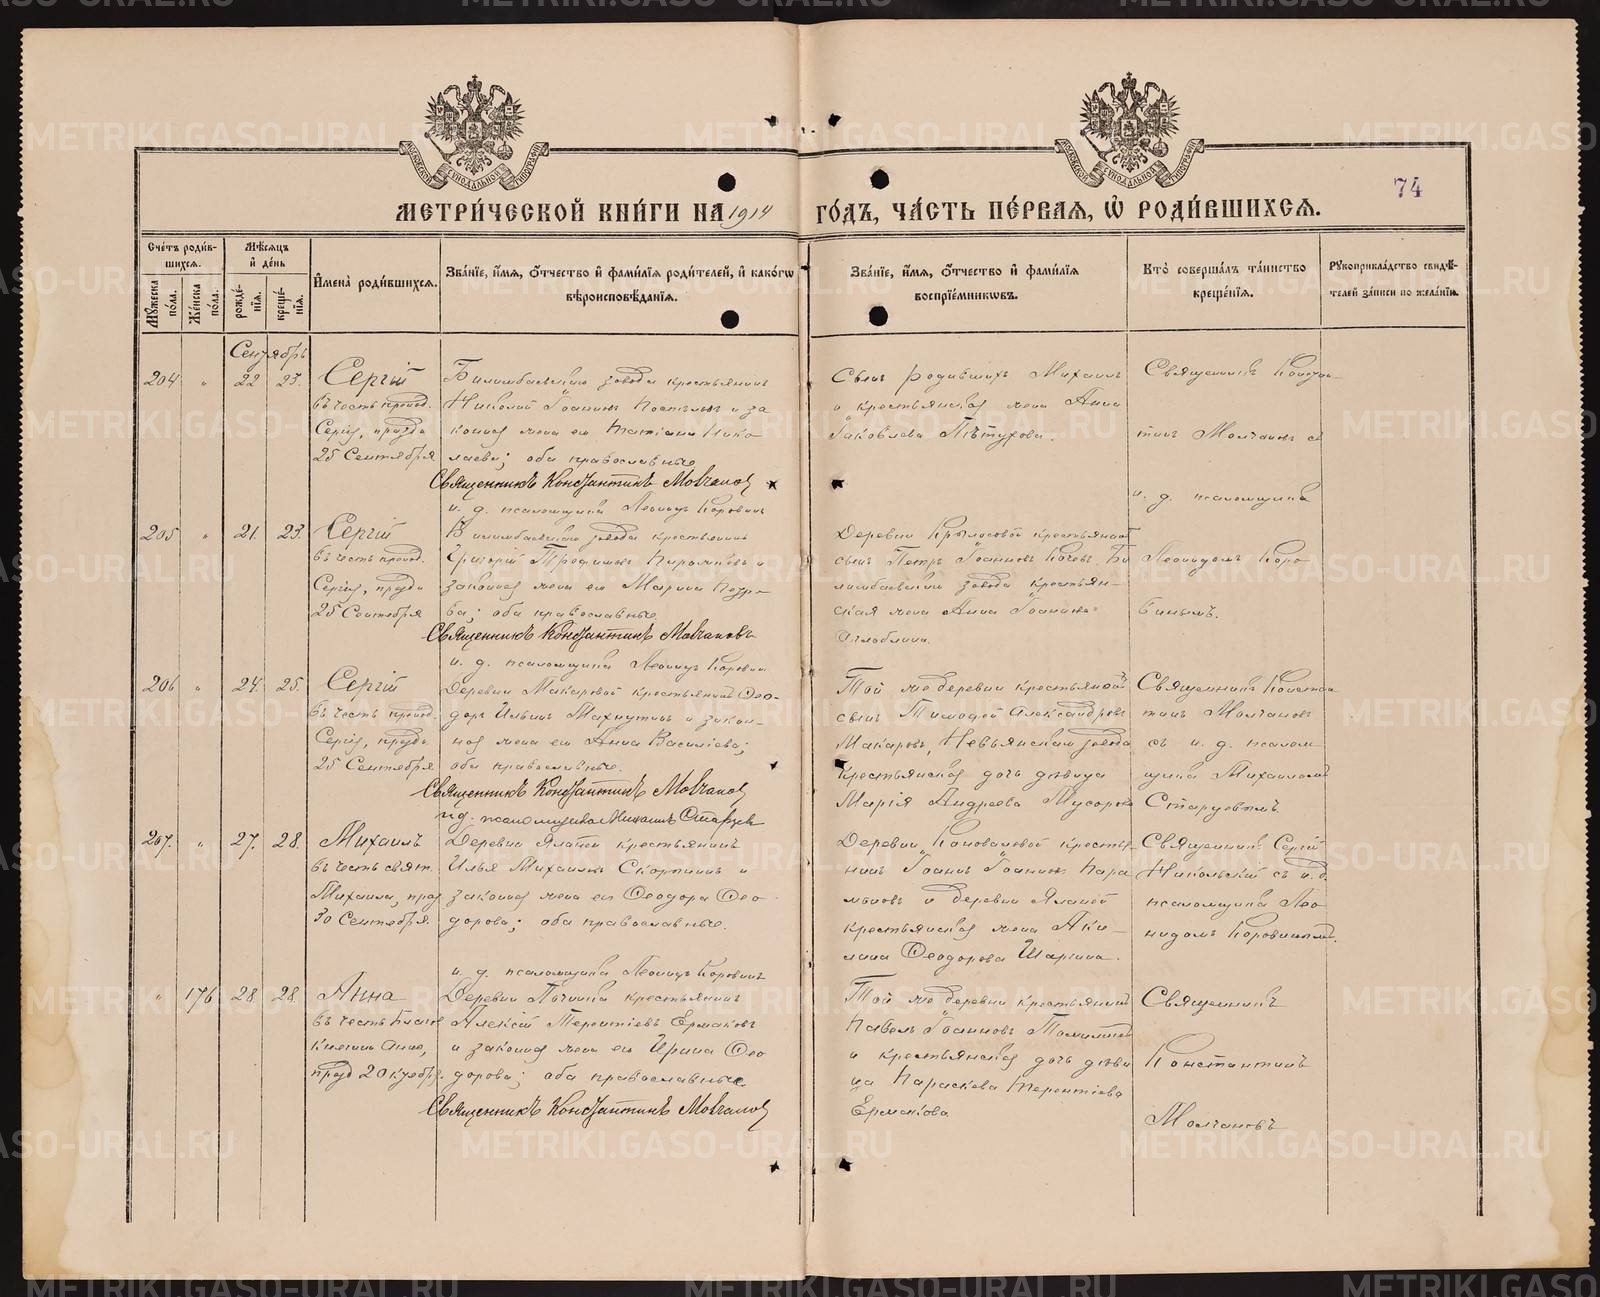 74
МЕТРИ́ЧЕСКОЙ КНИ́ГИ НА 1914 ГО́ДЪ, ЧА́СТЬ ПЕ́РВАЯ, Ѡ҆ РОДИ́ВШИХСЯ.
Сче́тъ роди́вшихся.
Мꙋ́жеска по́ла.
Же́нска по́ла.
Мѣ́сяцъ и҆ де́нь
рожде́нїя.
креще́нїя.
И҆мена̀ роди́вшихся.
Зва́нїе, и҆́мя, ѻ҆́тчество и҆ фами́лїя роди́телей, и҆ како́гѡ
вѣроисповѣ́данїя.
Зва́нїе, и҆́мя, ѻ҆́тчество и҆ фами́лїя
воспрїе́мникѡвъ.
Кто̀ соверша́лъ та́инство
креще́нїя.
Рꙋкоприкла́дство свидѣ́телей за́писи по жела́нїю.
Сентябрь
204 " 22 23. Сергій
въ честь препод.
Сергія, празд.
25 Сентября
Билимбаевскаго завода крестьянинъ
Николай Іоанновъ и за
конная жена его Татіана Нико
лаева; оба православные
Священникъ Константинъ Молчановъ
и. д. псаломщика Леонидъ Коровинъ
Сынъ родившихъ Михаилъ
и крестьянская жена Анна
Іаковлева Пѣтухова.
Священникъ Констан
тинъ Молчановъ съ
и. д. псаломщика
Леонидомъ Коро
винымъ.
205 " 21. 23. Сергій
въ честь препод.
Сергія, празд.
25 Сентября
Билимбаевскаго завода крестьянинъ
Григорій Трофимовъ и
законная жена его Марина Петро
ва; оба православные
Священникъ Константинъ Молчановъ
и. д. псаломщика Леонидъ Коровинъ
Деревни Крылосовой крестьянскій
сынъ Петръ Іоанновъ Би
лимбаевскаго завода крестьян-
ская жена Анна Іоаннова
Оглоблина.
206 " 24. 25. Сергій
въ честь препод.
Сергія, празд.
25 Сентября
Деревни Макаровой крестьянинъ Ѳео-
доръ Ильинъ Махнутинъ и закон-
ная жена его Анна Василіева;
оба православные.
Священникъ Константинъ Молчановъ
и.д. псаломщика Михаилъ Старцевъ
Той же деревни крестьянскій
сынъ Тимоѳей Александровъ
Макаровъ, Невьянскаго завода
крестьянская дочь дѣвица
Марія Андреева Мусорова
Священникъ Констан
тинъ Молчановъ
съ и. д. псалом
щика Михаиломъ
Старцевымъ.
207. " 27. 28. Михаилъ
въ честь свят.
Михаила, празд
30 Сентября.
Деревни крестьянинъ
Илья Михаиловъ Скорынинъ и
законная жена его Ѳеодора Ѳео-
дорова; оба православные.
и. д. псаломщика Леонидъ Коровинъ
Деревни Коноваловой крестья
нинъ Іоаннъ Іоанновъ Пара
моновъ и деревни
крестьянская жена Аки-
лина Ѳеодорова Шагина.
Священникъ Сергій
Никольскій съ и.д.
псаломщика Лео
нидомъ Коровинымъ.
" 176 28 28. Анна
въ честь благов
княгини Анны,
празд 2 Октября.
Деревни крестьянинъ
Алексій Терентіевъ Ермаковъ
и законная жена его Ирина Ѳео
дорова; оба православные.
Священникъ Константинъ Молчановъ
Той же деревни крестьянинъ
Павелъ Іоанновъ
и крестьянская дочь дѣви
ца Параскева Терентіева
Ермакова
Священникъ
Константинъ
Молчановъ
METRIKI.GASO-URAL.RU